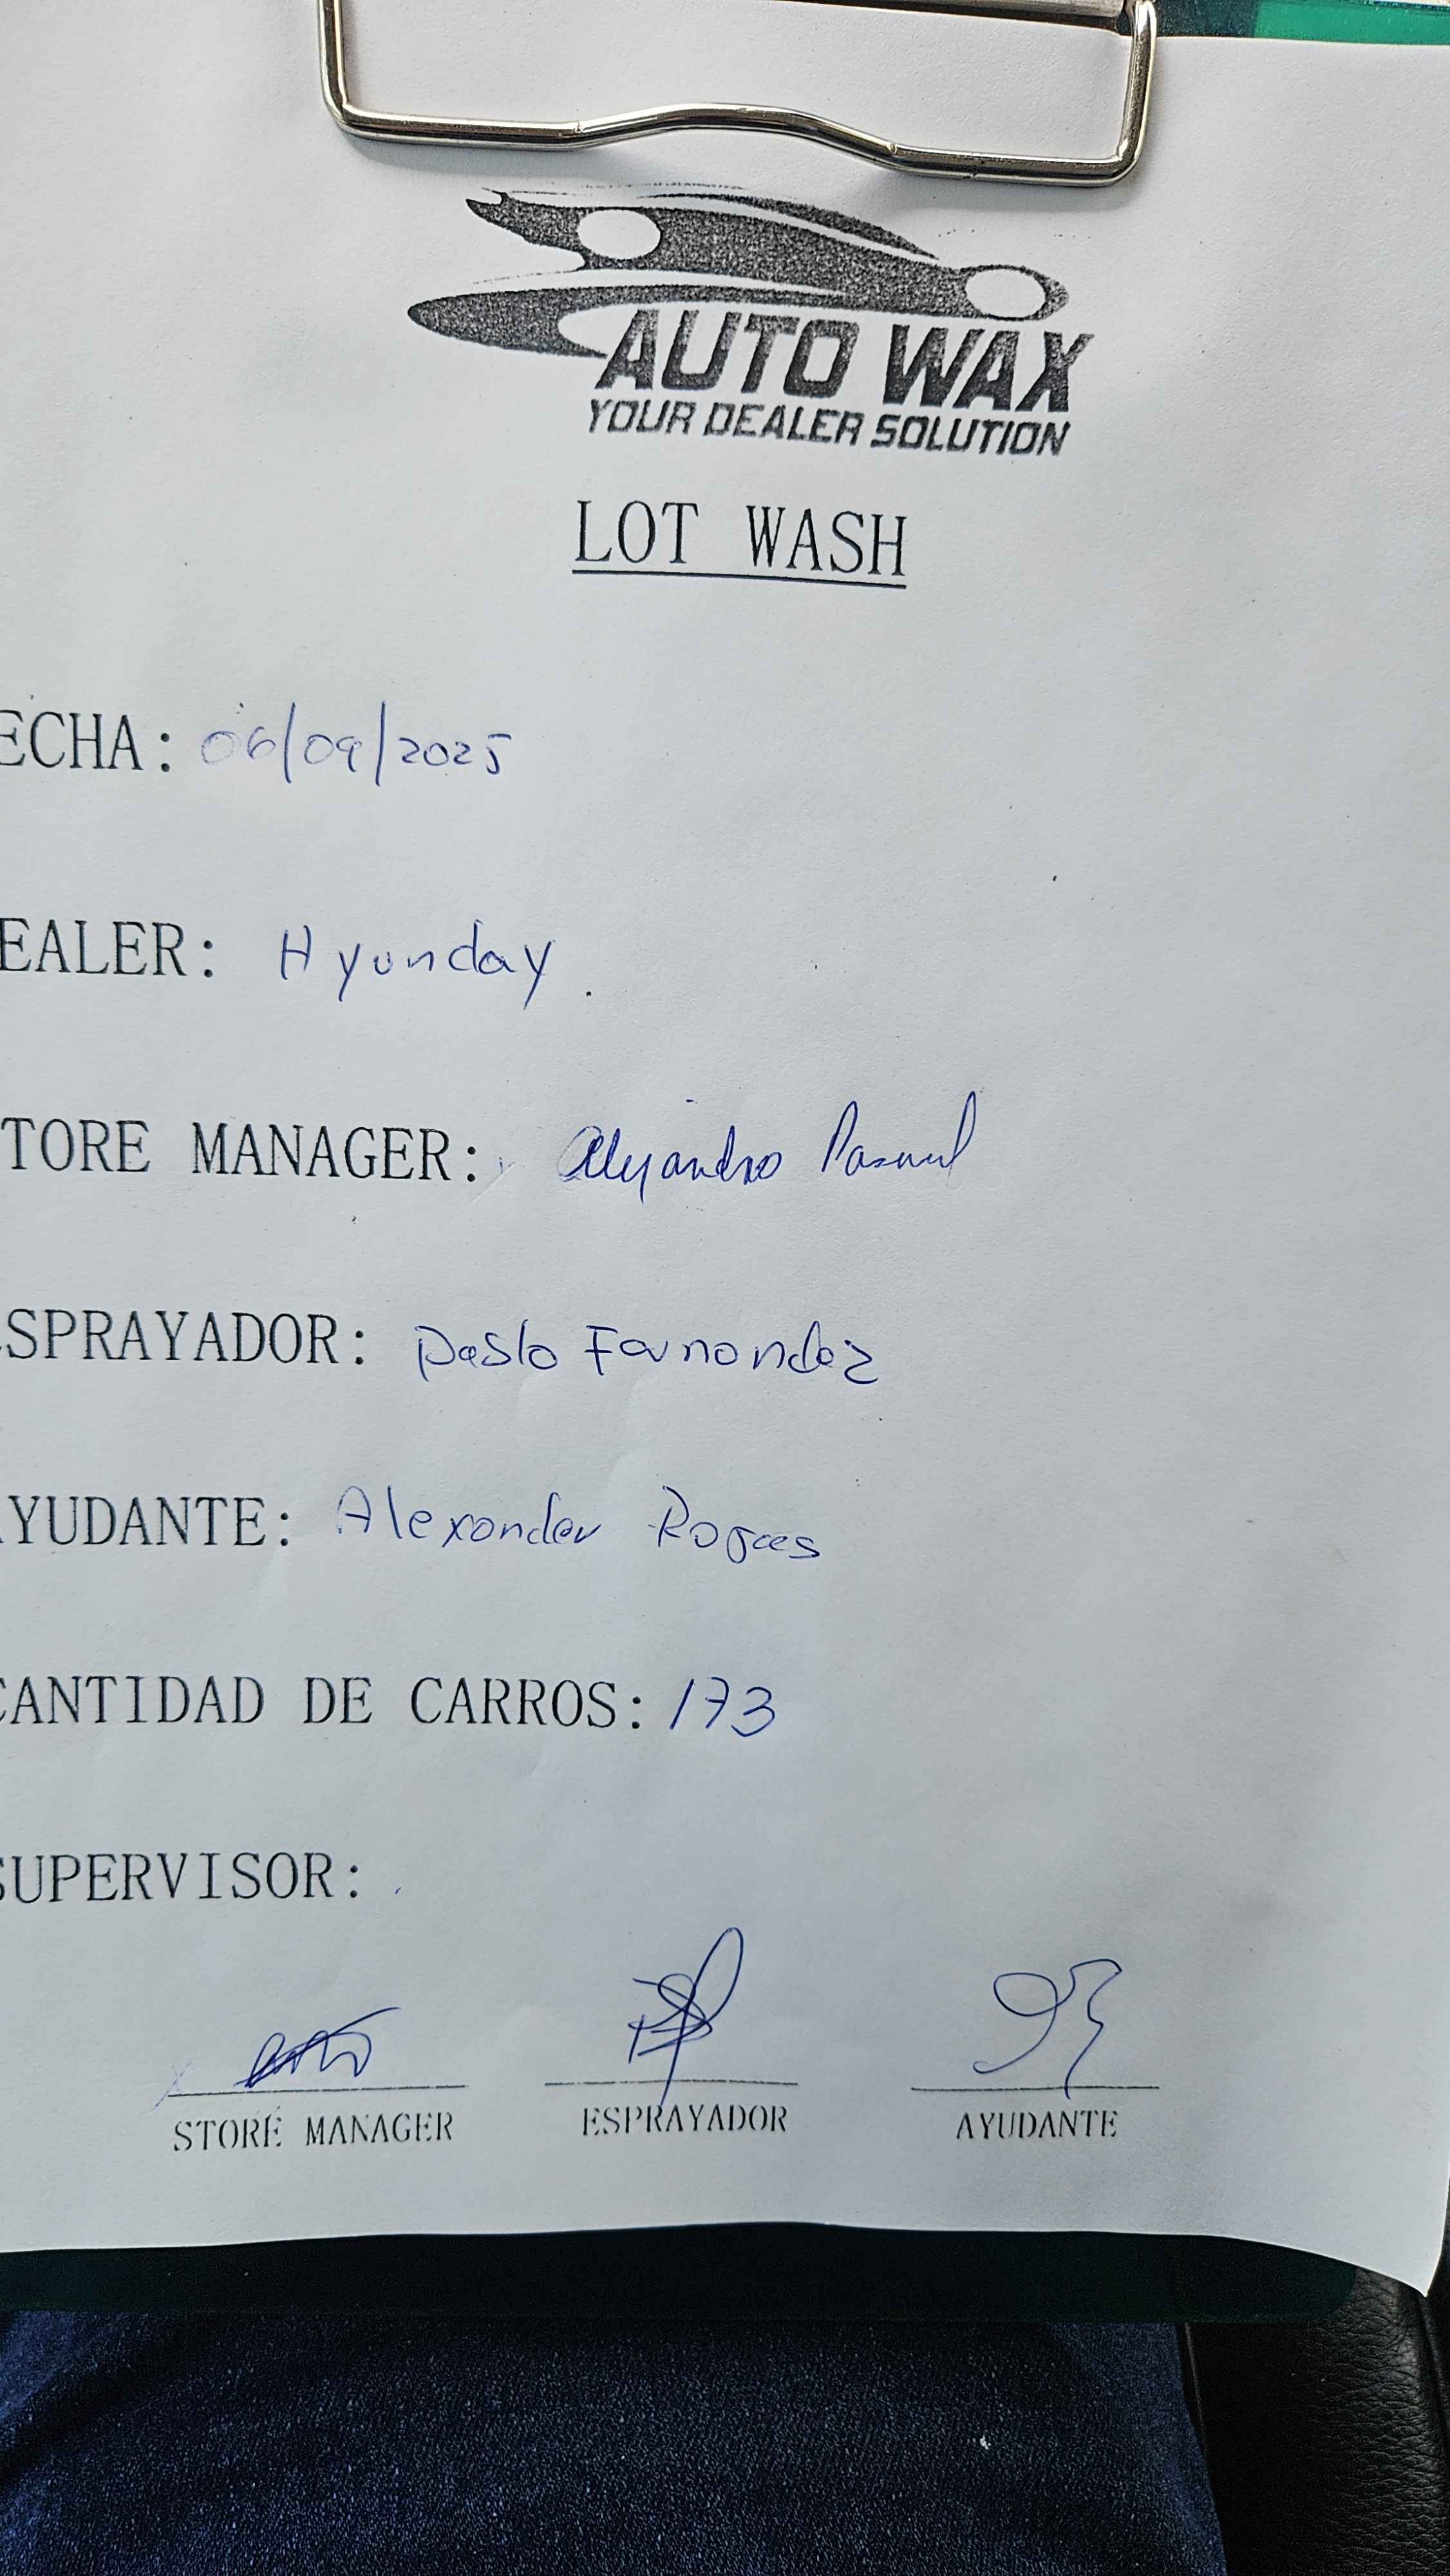 AUTO WAX
YOUR DEALER SOLUTION
LOT WASH
ECHA: 06/09/2025
EALER: Hyunday
TORE MANAGER: Alejandro
SPRAYADOR: Pablo Fernandez
YUDANTE: Alexander Rojas
CANTIDAD DE CARROS: 173
SUPERVISOR:
STORE MANAGER ESPRAYADOR AYUDANTE